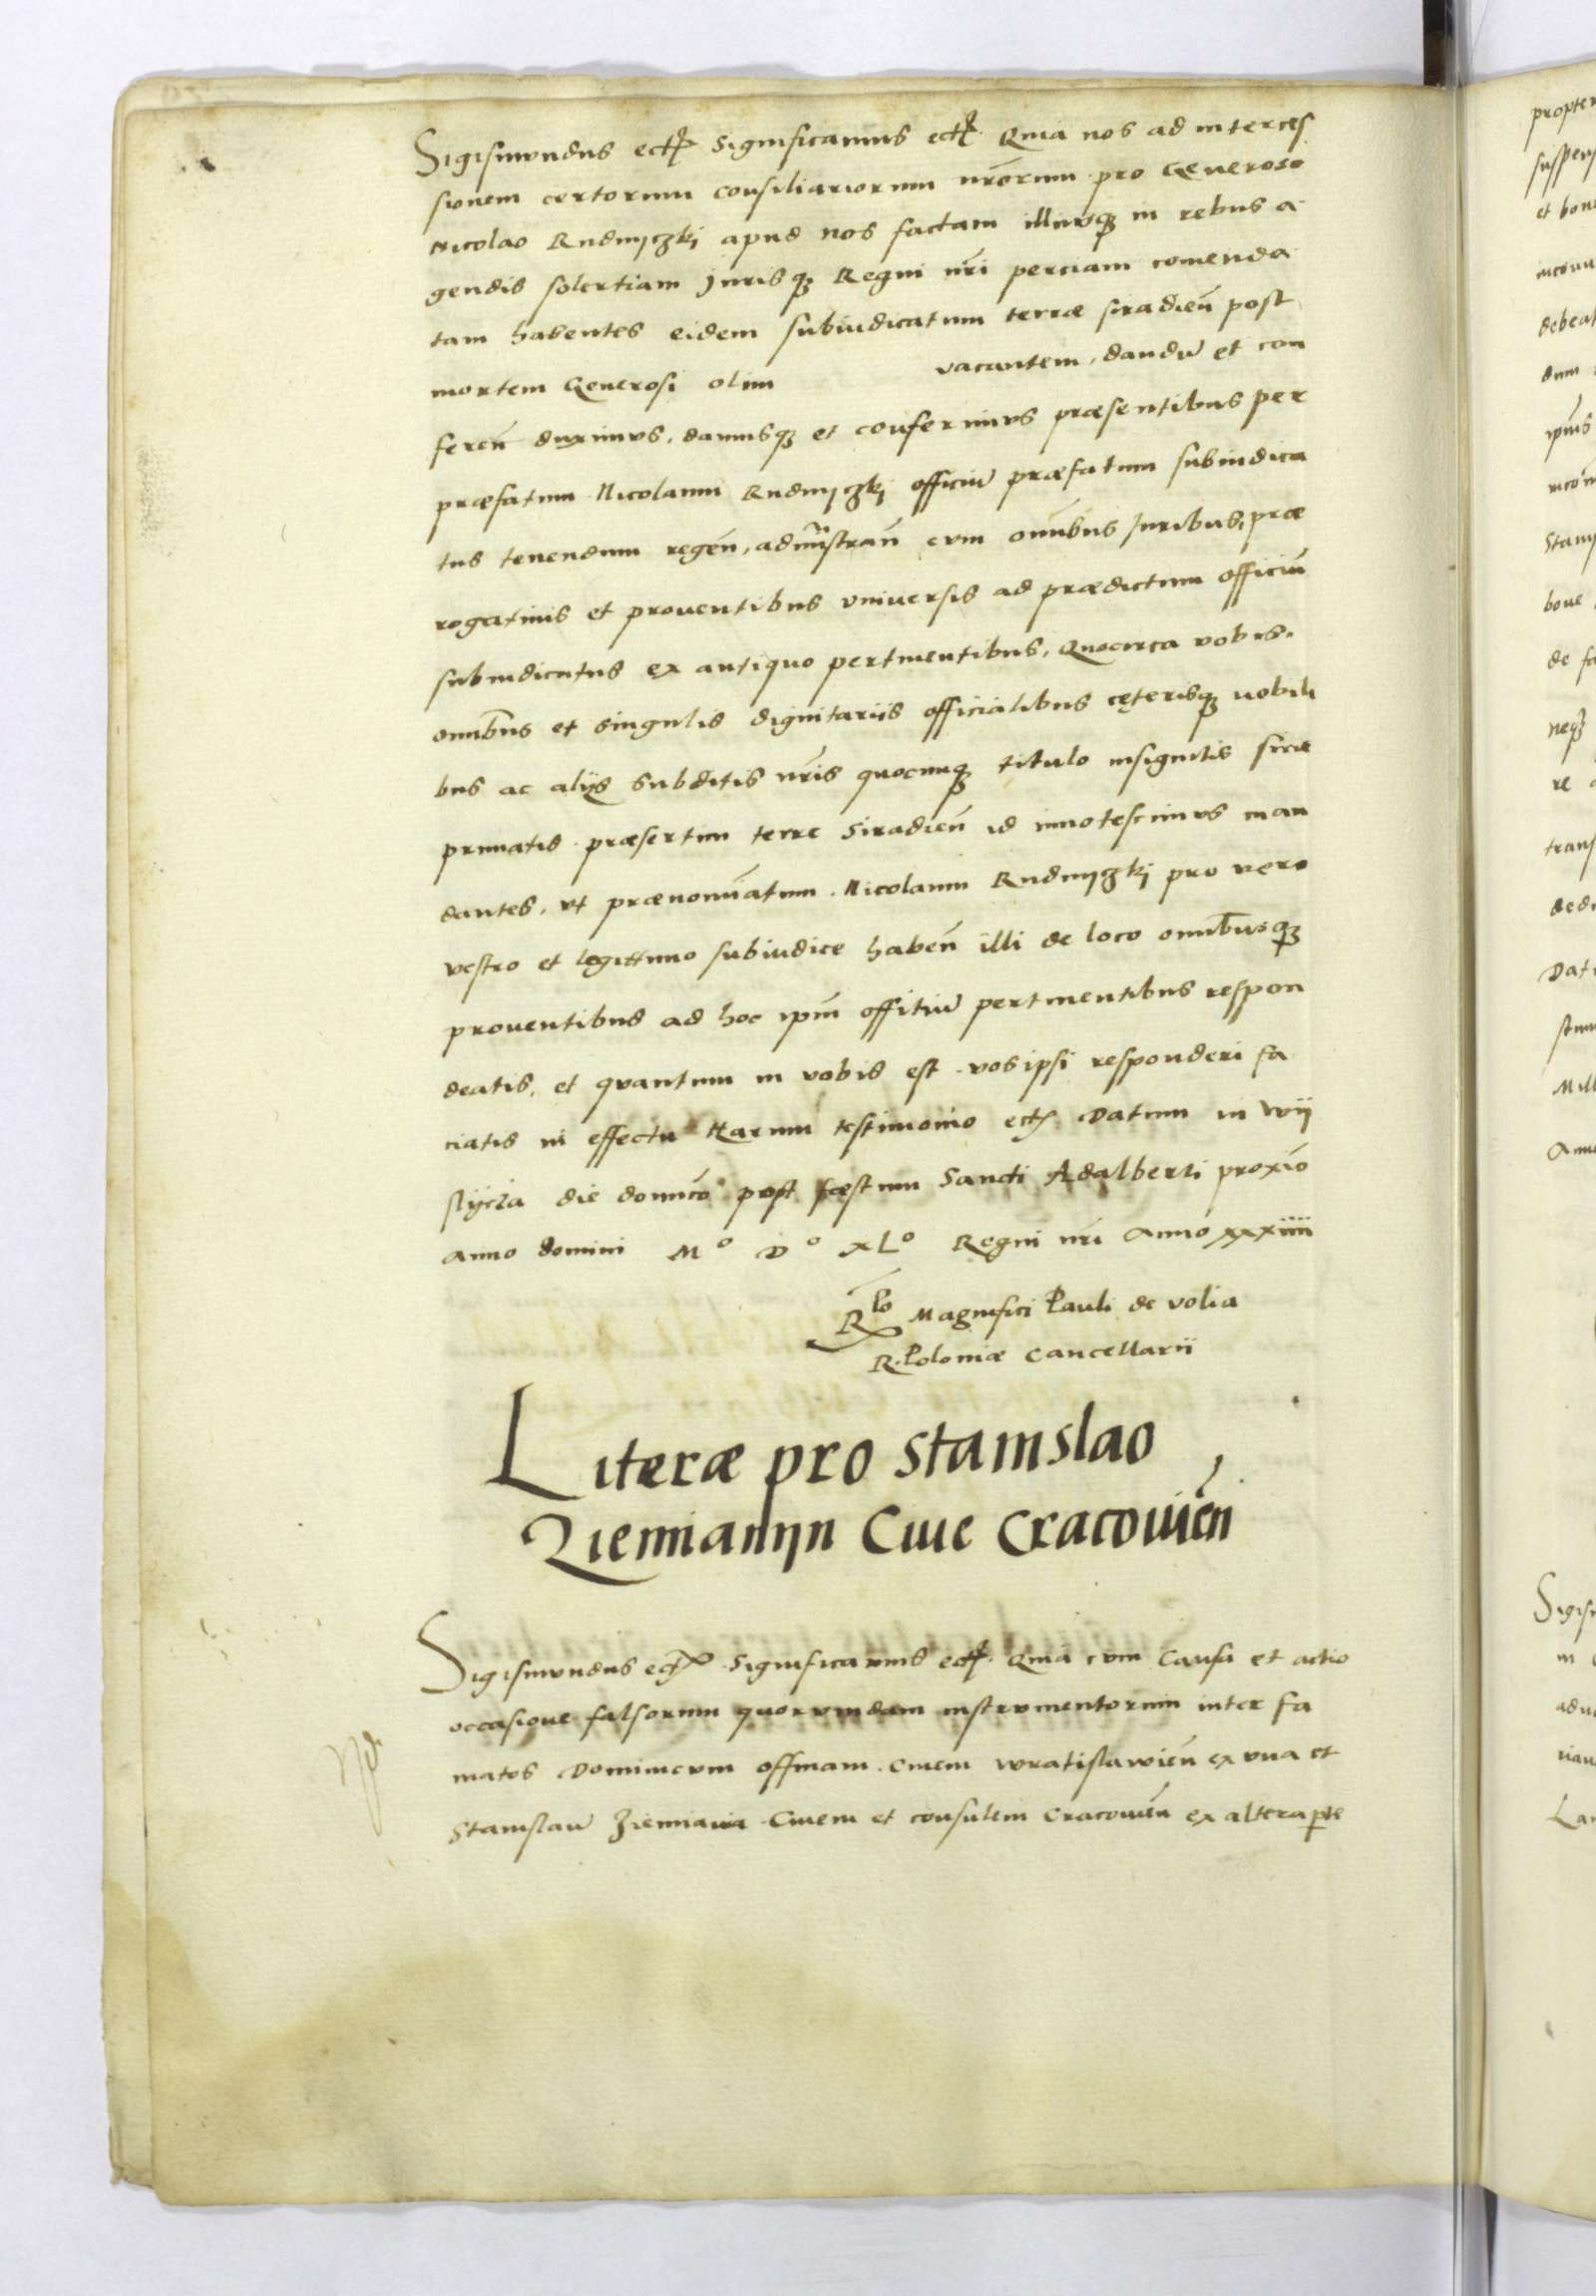 Sigismundus ect Significamus ect Quia nos ad interces
sionem certorum consiliariorum nrorum pro Generoso
Nicolao Rudnyczkj apud nos factam illiusq in rebus a
gendis solertiam Jurisq Regni nri periciam comenda
tam habentes eidem subiudicatum terræ siradien post
mortem Generosi olim vacantem, dandu et con
feren duximus, damusq et conferimus præsentibus per
præfatum Nicolaum Rudnyczkj officiu præfatum subiudica
tus tenendum regen, admistran cum omibus Juribus, præ
rogatiuis et prouentibus vniuersis ad prædictum officiu
subiudicatus ex antiquo pertinentibus, Quocirca vobis.
omibus et singulis dignitariis officialibus cęterisq nobili
bus ac alijs subditis nris quocunq titulo insignitis siue
priuatis præsertim terre Siradien id innotescimus man
dantes, vt prænominatum Nicolaum Rudnyczkj pro vero
vestro et legittimo subiudice haben illi de loco omibusq
prouentibus ad hoc ipm offitiu pertinentibus respon
deatis, et quantum in vobis est vos ipsi responderi fa
ciatis in effectu Harum testimonio ect Datum in Wij
slycza die domico post fæstum Sancti Adalberti proximo
Anno domini Mo Do xLo Regni nri Anno xxxiiii
Rlo Magnifici Pauli de volia
R. Poloniæ Cancellarii
Literæ pro Stanislao
Ziemianijn Ciue Cracouien
Sigismundus ect Significamus ect. Quia cum Causa et actio
occasione falsorum quorumdam instrumentorum inter fa
matos Dominicum offman Ciuem wratislawien ex vna et
Stanislau Ziemiania Ciuem et consulem Cracouien ex altera pte